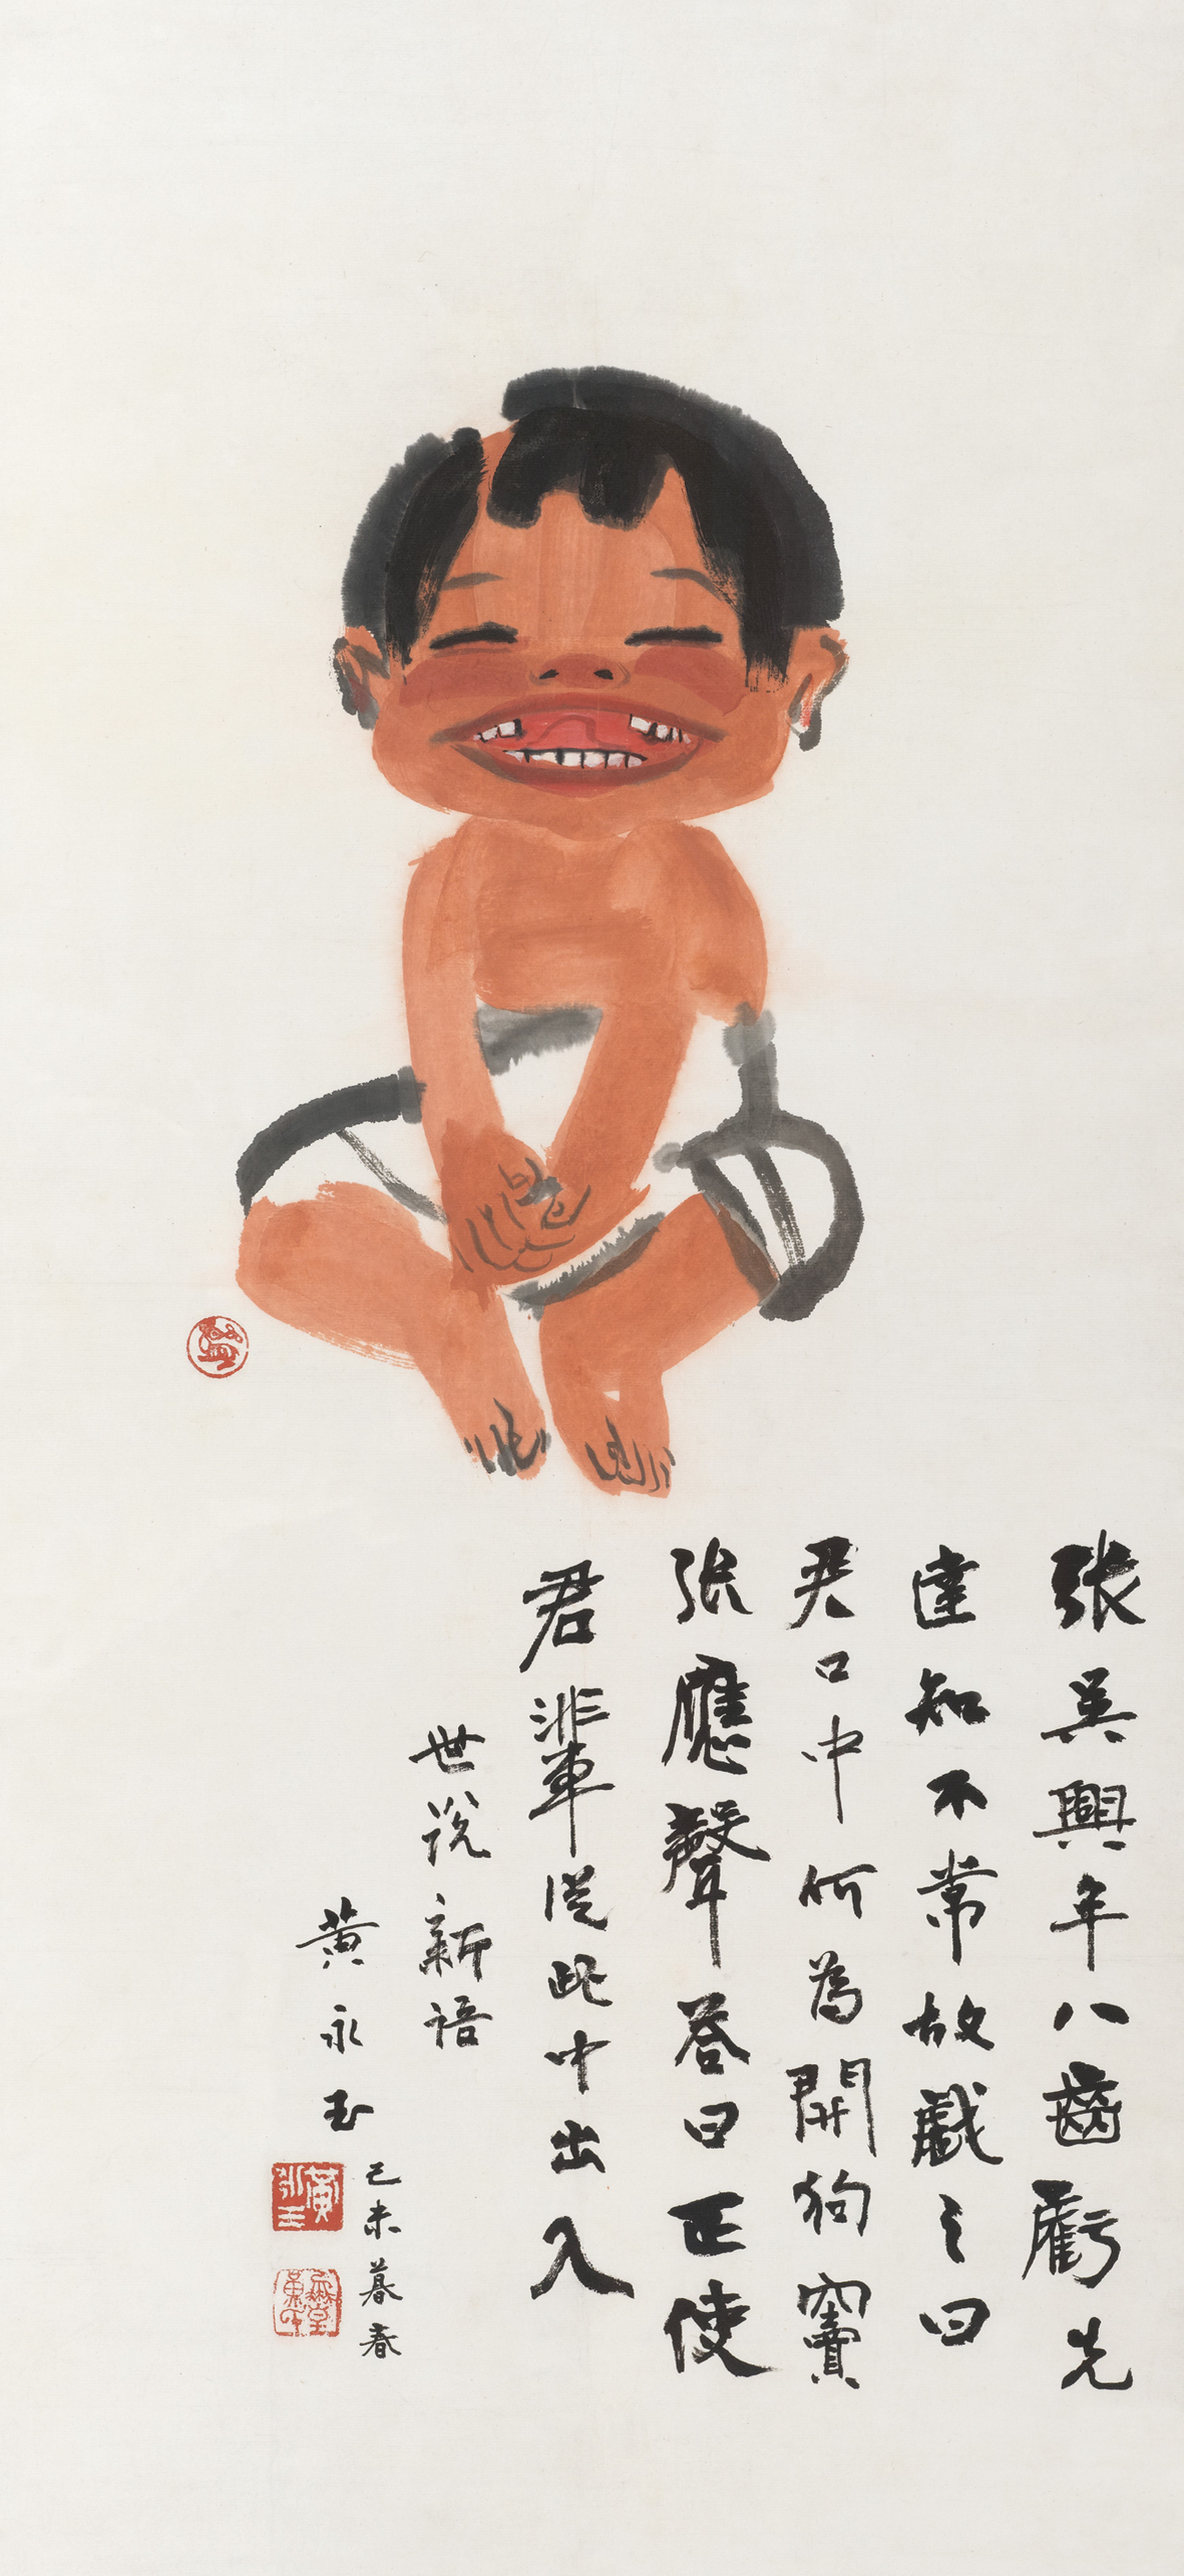 張吳興年八齒虧先
達知不常故戲之曰
君口中何為開狗竇
張應聲答曰正使
君輩從此中出入
世說新語
黃永玉
己未暮春
黃永玉